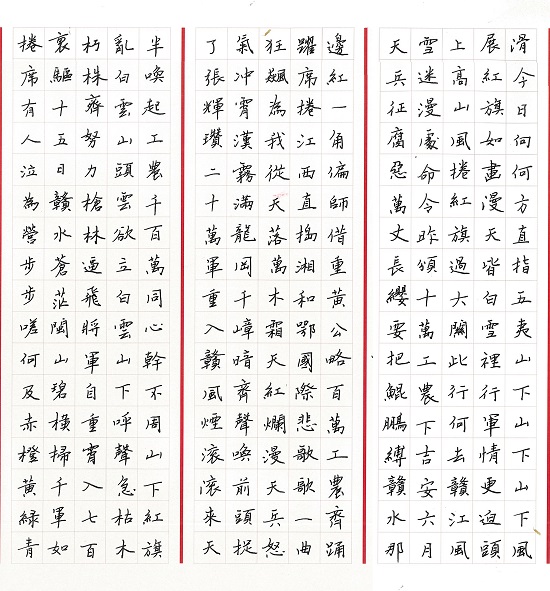 滑今日何何方直指五夷山下山下山下風
展紅旗如畫漫天皆白雪裡行軍情更迫頭
上高山風捲紅旗過大關此行何去贛江風
雪迷漫處命令昨頒十萬工農下吉安六月
天兵征腐惡萬丈長纓要把鯤鵬縛贛水那
邊紅一角偏師借重黃公略百萬工農齊踊
躍席捲江西直搗湘和鄂國際悲歌歌一曲
狂飆為我從天落萬木霜天紅爛漫天兵怒
氣冲霄漢霧滿龍岡千嶂暗齊聲喚前頭捉
了張輝瓚二十萬軍重入贛風煙滾滾來天
半喚起工農千百萬同心幹不周山下紅旗
亂白雲山頭雲欲立白雲山下呼聲急枯木
朽株齊努力槍林逼飛將軍自重霄入七百
裏驅十五日贛水蒼茫閩山碧橫掃千軍如
捲席有人泣為營步步嗟何及赤橙黃綠青